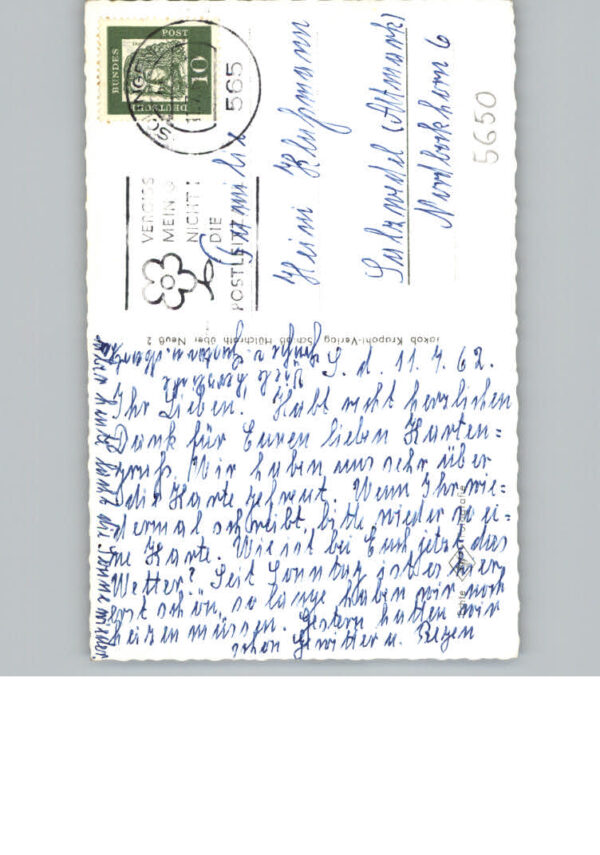 DEUTSCHE BUNDESPOST
10
SOLINGEN
565
VERGISS
MEIN
NICHT
DIE
POSTLEITZAHL
Familie
Heini Kluhmann
Salzwedel (Altmark)
Nordbockhorn 6
5650
Jakob Krapohl-Verlag Schloß Hülchrath über Neuß 2
S. d. 11.7.62.
Ihr Lieben. Habt recht herzlichen
Dank für Euren lieben Karten=
gruß. Wir haben uns sehr über
die Karte gefreut. Wenn Ihr wie=
dermal schreibt, bitte wieder so ei=
ne Karte. Wie ist bei Euch jetzt das
Wetter? Seit Sonntag ist es hier
erst schön, so lange haben wir noch
heizen müssen. Gestern hatten wir
schon Gewitter u. Regen
aber heute lacht die Sonne wieder.
Viele herzliche
Grüße v.